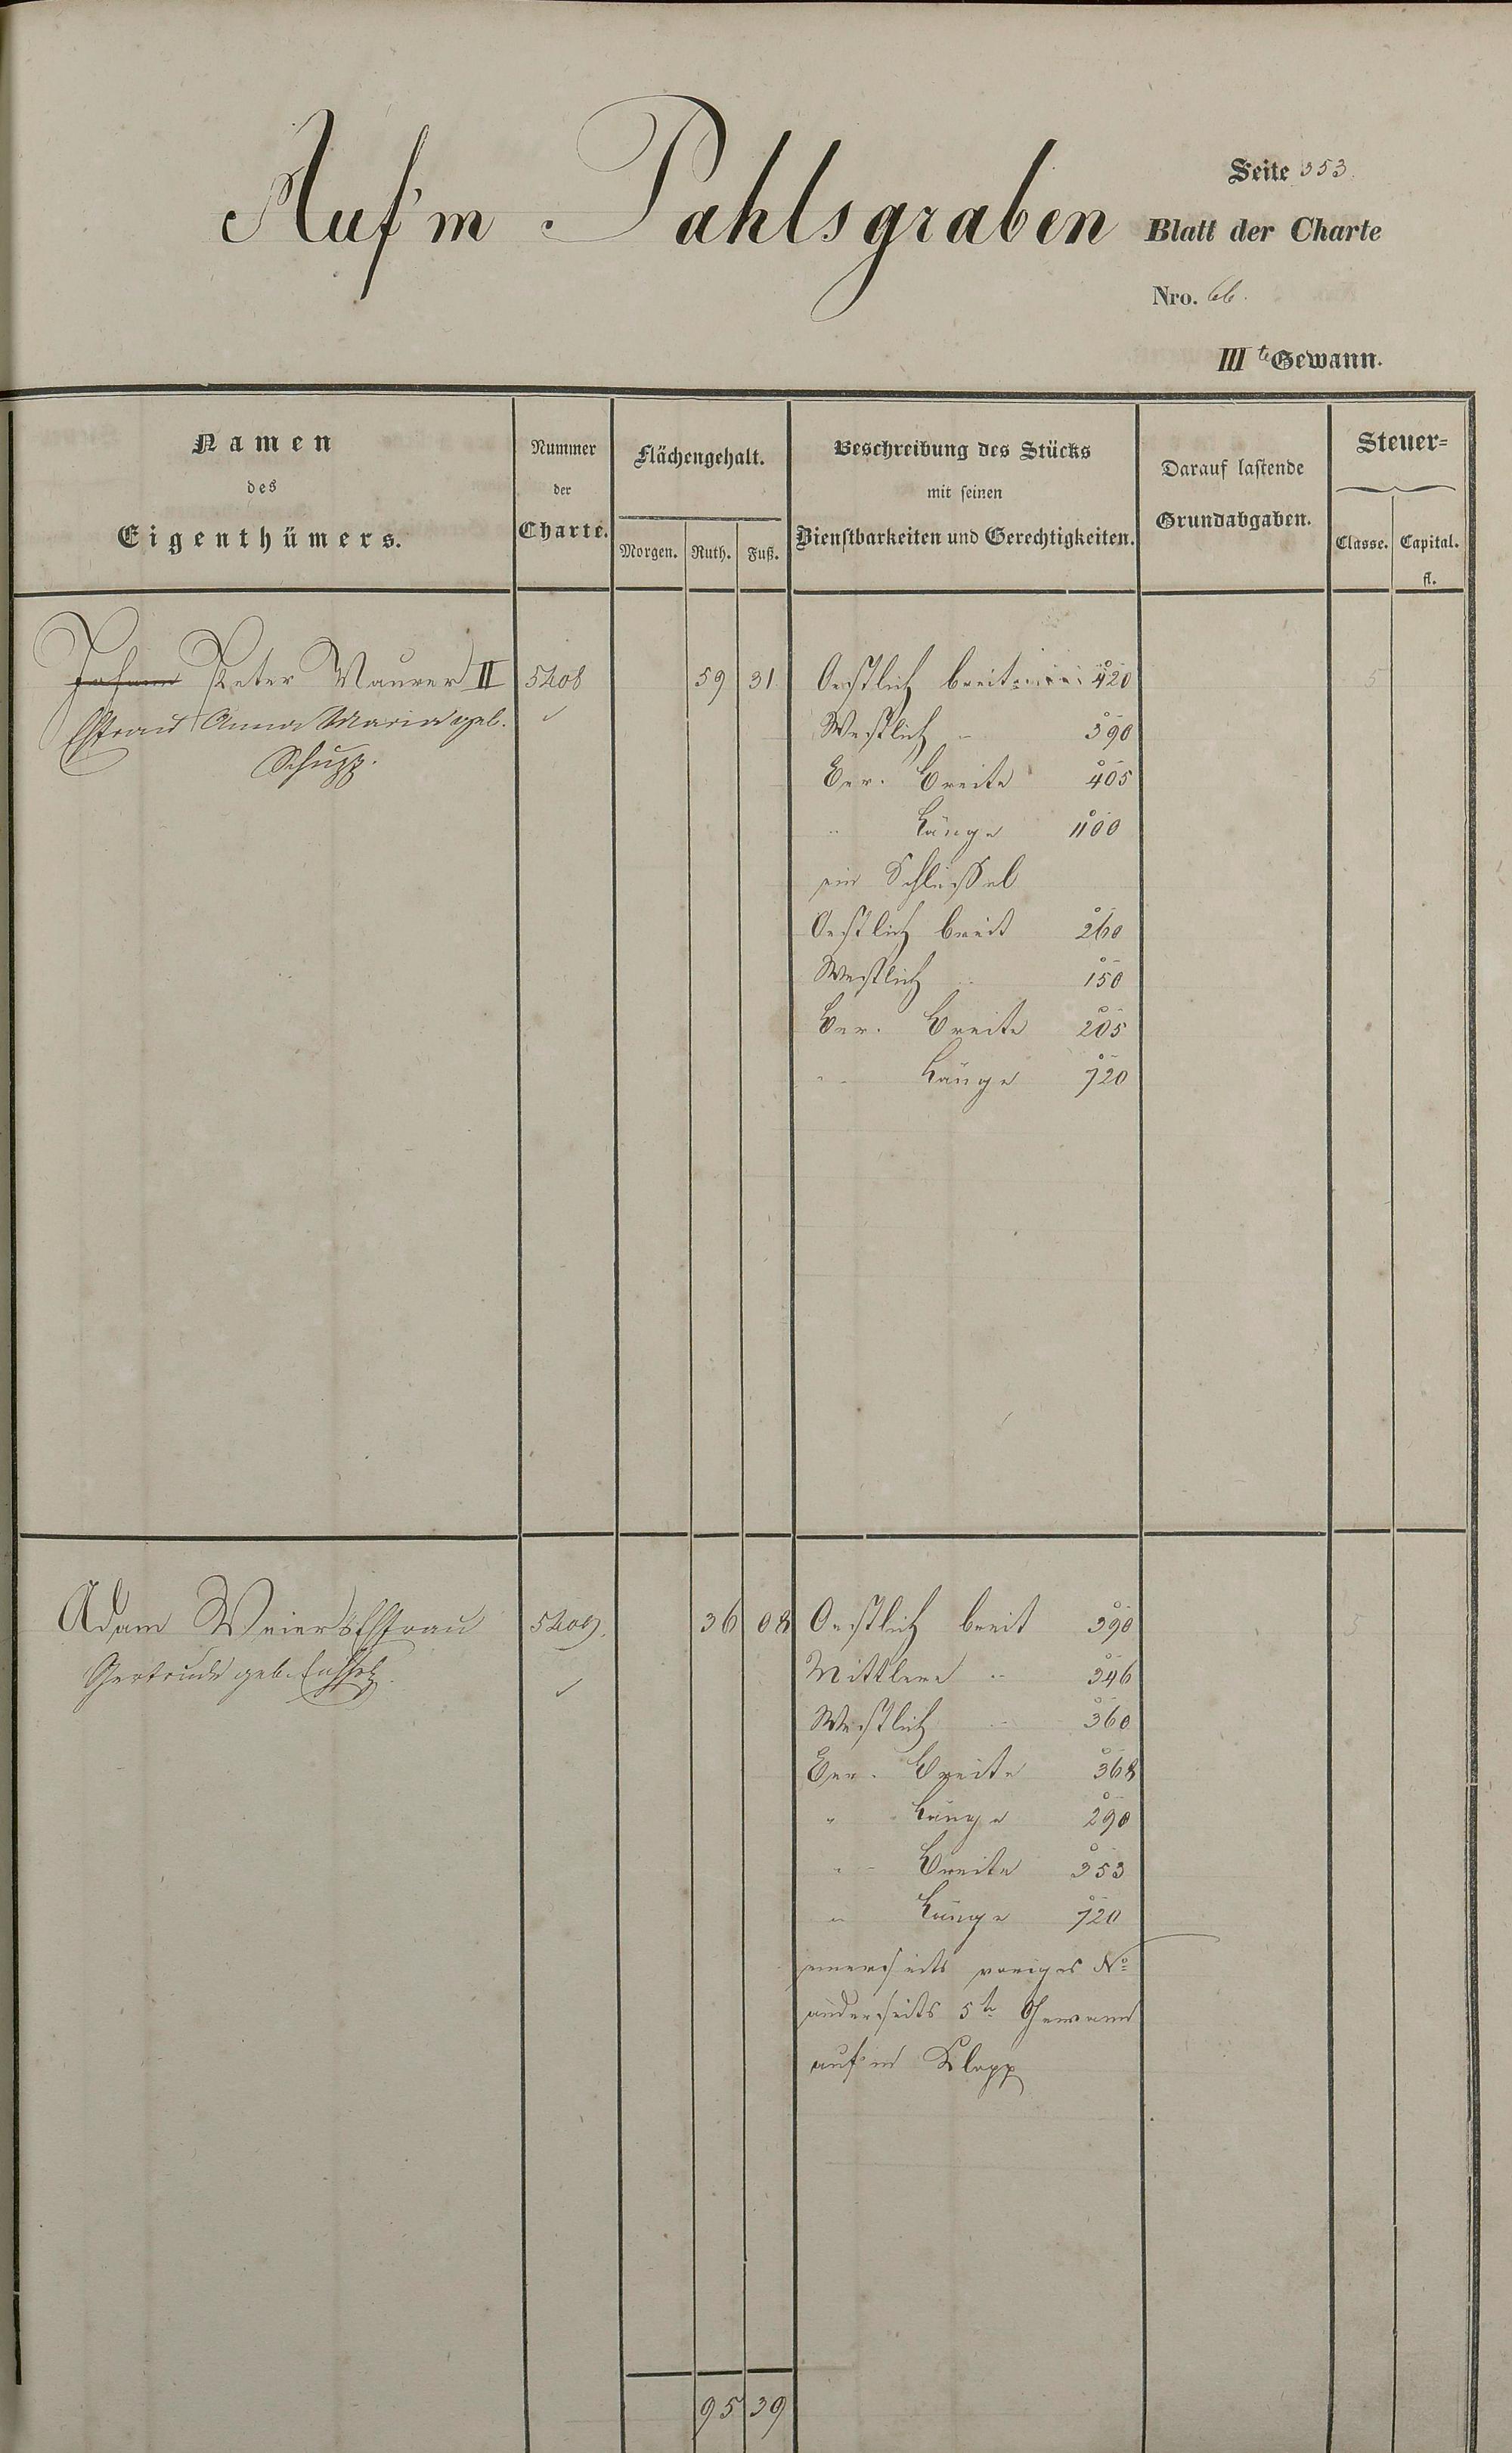 Auf'm Pahlsgraben
Seite 353.
Blatt der Charte
Nro. 66.
III te Gewann.
Namen
des
Eigenthümers.
Nummer
der
Charte.
Flächengehalt.
Morgen. Ruth. Fuß.
Beschreibung des Stücks
mit seinen
Dienstbarkeiten und Gerechtigkeiten.
Darauf lastende
Grundabgaben.
Steuer=
Classe. Capital.
fl.
Johann Peter Maurer II 5208 59 31 Oestlich breit 420 5
Ehfrau Anna Maria geb.
Schupp.
Westlich " 390
Ber. Breite 405
" Länge 1100
ein Schlüssel
Oestlich breit 260
Westlich " 150
Ber. Breite 205
" Länge 720
Adam Weiers Ehfrau 5209. 36 08 Oestlich breit 390 5
Gertrude geb.
Mittlere " 346
Westlich " 360
Ber. Breite 368
" Länge 290
" Breite 353
" Länge 720
einerseits voriges No
anderseits 5te Gewann
auf'm Klopp
95 39